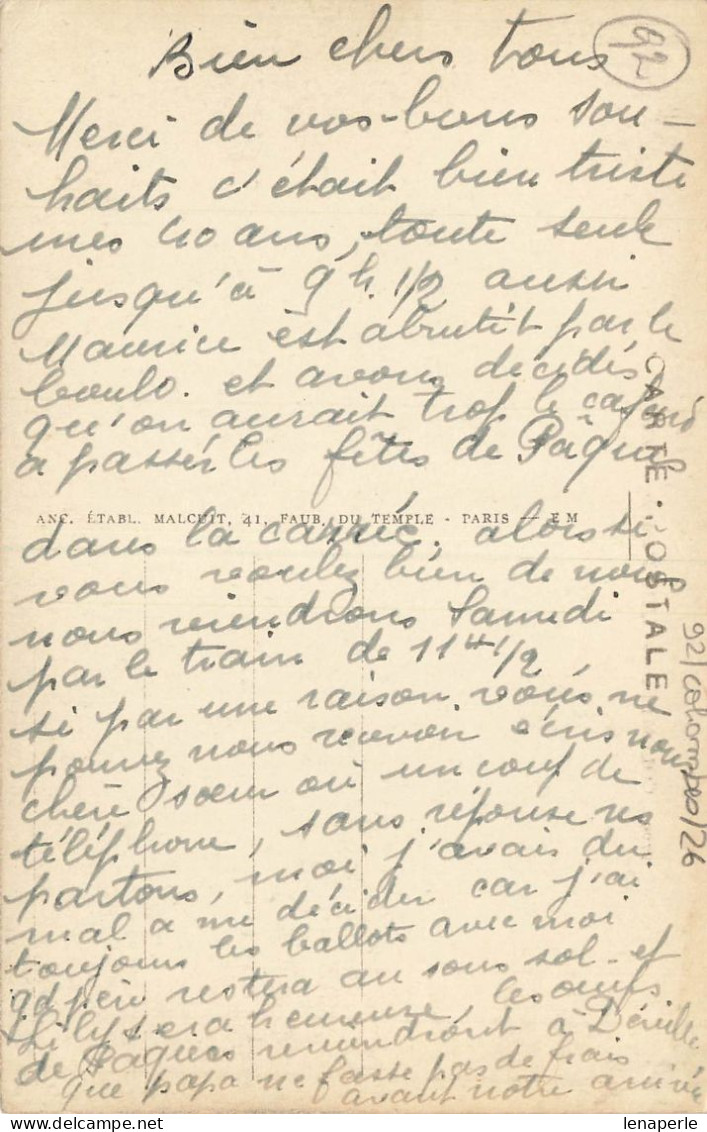 Bien chers tous
92
Merci de vos bons sou-
haits c'était bien triste
mes 40 ans, toute seule
jusqu'à 9h.1/2 aussi
Maurice est abrutit par le
boulo. et avons décidés
qu'on aurait trop le cafard
a passer les fêtes de Pâques
ANC. ÉTABL. MALCUIT, 41, FAUB. DU TEMPLE - PARIS — EM
CARTE POSTALE
dans la carrée. alors si
vous voulez bien de nous
nous viendrons Samedi
par le train de 11H1/2
si par une raison vous ne
pouvez nous recevoir écris nous
chère soeur ou un coup de
téléphone, sans réponse ns
partons, moi j'avais du
mal a me décider car j'ai
toujours les ballots avec moi
gd père restera au sous sol - et
Lily sera heureuse, les oeufs
de Paques viendront à Déville
que papa ne fasse pas de frais
avant notre arrivée
92/colombes/26
lenaperle